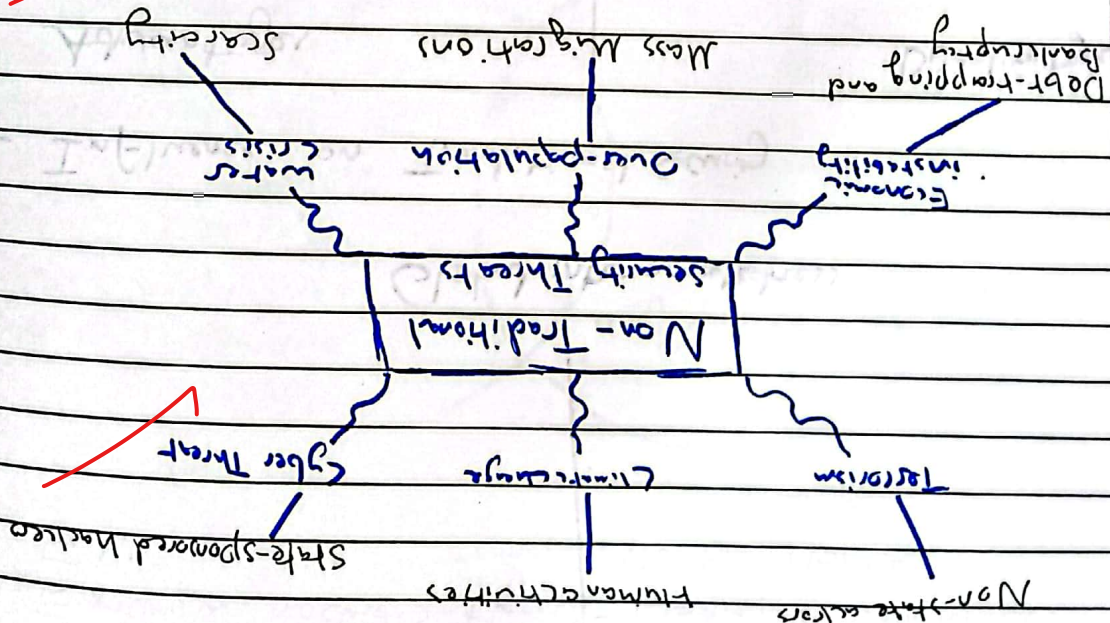 Non-state actors
Human activities
State-sponsored hackers
Terrorism
Climate change
Cyber Threat
Non-Traditional
Security Threats
Economic
instability
Over-population
Water
Crisis
Debt-trapping and
Bankruptcy
Mass Migrations
Scarcity